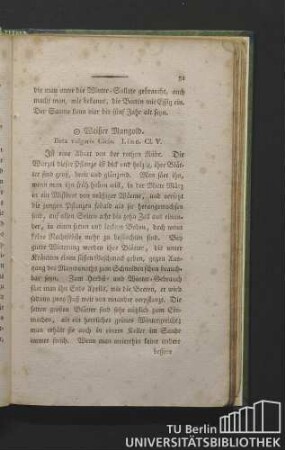 die man unter die Winter-Sallate gebraucht, auch
macht man, wie bekannt, die Beeten mit Essig ein.
Der Saame kann vier bis fünf Jahr alt seyn.
Weißer Mangold.
Beta vulgaris Cicla. Linn. Cl. V.
Ist eine Abart von der rothen Rübe. Die
Wurzel dieser Pflanze ist dick und holzig, ihre Blät-
ter sind groß, breit und glänzend. Man säet ihn,
wenn man ihn früh haben will, in der Mitte März
an ein Mistbeet von mäßiger Wärme, und versetzt
die jungen Pflanzen sobald als sie herangewachsen
sind, auf allen Seiten acht bis zehn Zoll aus einan-
der, in einen fetten und lockern Boden, doch wenn
keine Nachtfröste mehr zu befürchten sind. Bey
guter Witterung werden ihre Blätter, die unter
Kräutern einen sehr guten geben, gegen An-
fang des Maymonaths zum Schneiden schon brauch-
bar seyn. Zum Herbst- und Winter-Gebrauch
säet man ihn Ende April, wie die Beeten, er wird
sodann zwey Fuß weit von einander verpflanzt. Die
fetten großen Blätter sind sehr nützlich zum Ein-
machen, als ein herrliches grünes Wintergericht;
man erhält sie auch in einem Keller im Sande
immer frisch. Wenn man weiterhin keine andere
bessere
TU Berlin
UNIVERSITÄTSBIBLIOTHEK